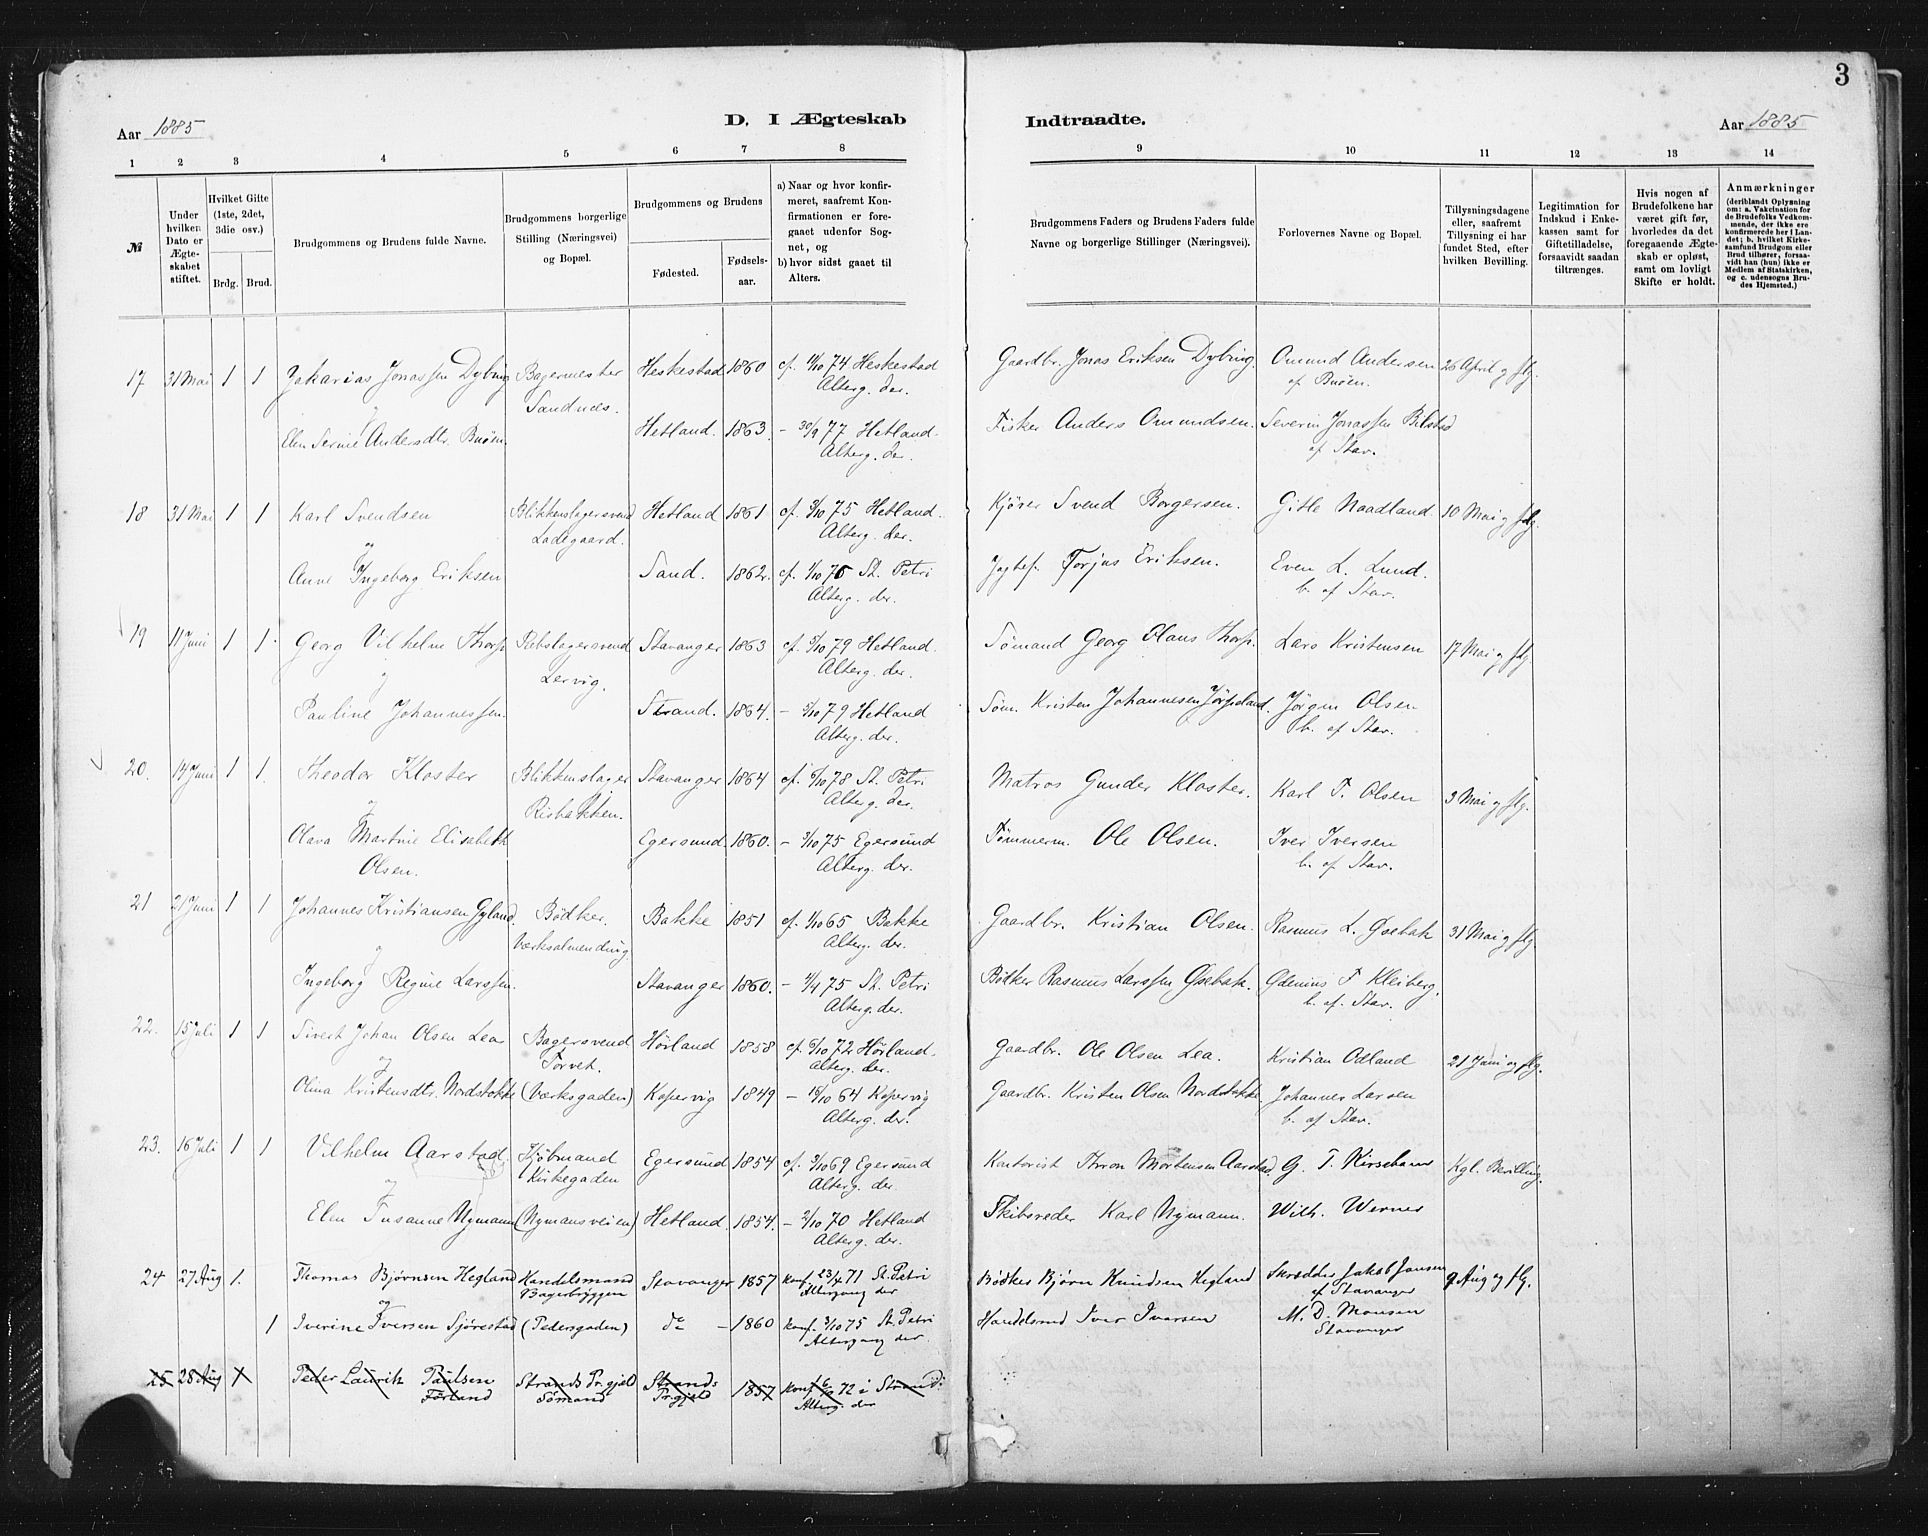 3
Aar 1885
D. I Ægteskab
Indtraadte.
Aar 1885
1 2 3 4 5 6 7 8 9 10 11 12 13 14
№
Under hvilken Dato er Ægteskabet stiftet.
Hvilket Gifte (1ste, 2det, 3die osv.)
Brdg. Brud.
Brudgommens og Brudens fulde Navne.
Brudgommens borgerlige Stilling (Næringsvei) og Bopæl.
Brudgommens og Brudens
Fødested.
Fødselsaar.
a) Naar og hvor konfirmeret, saafremt Konfirmationen er foregaaet udenfor Sognet, og
b) hvor sidst gaaet til Alters.
Brudgommens Faders og Brudens Faders fulde Navne og borgerlige Stillinger (Næringsvei).
Forlovernes Navne og Bopæl.
Tillysningsdagene eller, saafremt Tillysning ei har fundet Sted, efter hvilken Bevilling.
Legitimation for Indskud i Enkekassen samt for Giftetilladelse, forsaavidt saadan tiltrænges.
Hvis nogen af Brudefolkene har været gift før, hvorledes da det foregaaende Ægteskab er opløst, samt om lovligt Skifte er holdt.
Anmærkninger
(deriblandt Oplysning om: a. Vakcination for de Brudefolks Vedkommende, der ikke ere konfirmerede her i Landet; b. hvilket Kirkesamfund Brudgom eller Brud tilhører, forsaavidt han (hun) ikke er Medlem af Statskirken, og c. udensogns Brudes Hjemsted.)
17 31 Mai 1 1 Zakarias Jonassen Dybing Bagermester Heskestad 1860 cf. 11/10 74 Heskestad Gaardbr. Jonas Eriksen Dybing. Omund Andersen 26 April og flg.
og Sandnes. Alterg. der. af Buøen.
Elen Serine Andersdtr. Buøen. Hetland. 1863. - 30/9 77 Hetland. Fisker Anders Omundsen. Severin Jonassen Bilstad
Alterg. der. af Stav.
18 31 Mai 1 1 Karl Svendsen Blikkenslagersvend Hetland 1861 cf. 3/10 75 Hetland. Kjører Svend Borgersen. Gitle Naadland 10 Mai og flg.
og Ladegaard. Alterg. der.
Anne Ingeborg Eriksen Sand. 1862. cf. 1/10 76 St. Petri Jagtef. Torjus Eriksen. Even L. Lund.
Alterg. der. b. af Stav.
19 11 Juni 1 1. Georg Vilhelm Thorp Rebslagersvend Stavanger 1863 cf. 5/10 79 Hetland. Sømand Georg Olaus Thorp. Lars Kristensen 17 Mai og flg.
og Lervig. Alterg. der.
Pauline Johannessen. Strand. 1864. - 5/10 79 Hetland Søm. Kristen Johannesen Jørpeland. Jørgen Olsen
Alterg. der. b. af Stav.
20. 14 Juni 1 1. Theodor Kloster Blikkenslager Stavanger 1864 cf. 6/10 78 St. Petri Matros Gunder Kloster. Karl T. Olsen 3 Mai og flg.
og Risbakken. Alterg. der.
Olava Martine Elisabeth Egersund. 1860. - 3/10 75 Egersund Tømmerm. Ole Olsen. Iver Iversen
Olsen. Alterg. der. b. af Stav.
21 21 Juni 1 1 Johannes Kristiansen Gyland. Bødker. Bakke 1851 cf. 1/10 65 Bakke Gaardbr. Kristian Olsen. Rasmus L. Øsebak 31 Mai og flg.
og Værksalmending Alterg. der.
Ingeborg Regine Larssen. Stavanger 1860. - 4/4 75 St. Petri Bødker Rasmus Larssen Øsebak. T Kleiberg.
Alterg. der. b. af. Stav.
22. 15 Juli 1 1 Sivert Johan Olsen Lea Bagersvend Hørland 1858 cf. 6/10 72 Hørland. Gaardbr. Ole Olsen Lea. Kristian Odland 21 Juni og flg.
og Torvet. Alterg. der.
Olina Kristensdtr. Nordstokke (Værksgaden) Kopervig 1849 - 18/10 64 Kopervig Gaardbr. Kristen Olsen Nordstokke Johannes Larsen
Alterg. der. b. af Stav.
23. 16 Juli 1 1 Vilhelm Aarstad. Kjøbmand Egersund 1854 cf. 3/10 69 Egersund Kontorist Thron Mortensen Aarstad. G. T. Kirsebom Kgl. Bevilling.
og Kirkegaden Alterg. der.
Elen Susanne Nymann (Nymansveien) Hetland. 1854. - 2/10 70 Hetland Skibsreder Karl Nymann. Wilh. Werner
Alterg. der.
24 27 Aug 1. Thomas Bjørnsen Hegland Handelsmand Stavanger 1857 konf. 23/4 71 St. Petri Bødker Bjørn Knudsen Hegland Skrædder Jakob Jansen 9 Aug og flg.
og Bagerbryggen Altergang der af Stavanger
1 Iverine Iversen Sjørestad (Pedersgaden) do - 1860 konf. 3/10 75 St. Petri Handelsmd Iver Iversen M. D. Monsen
Altergang der. Stavanger
25 28 Aug 1 Peder Laurits Paulsen Strands Pr.gjeld Strands 1857 konf 6/10 72 i Strand.
Førland Sømand Pr.gjeld Alterg. der